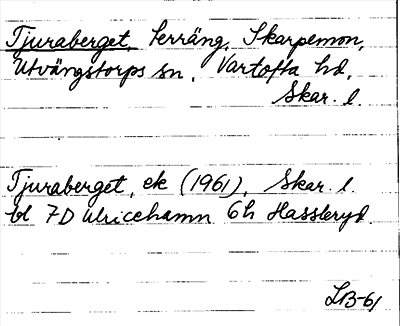 Tjuraberget, terräng, Skarpemon,
Utvängstorps sn, Vartofta hd,
Skar. l.
Tjuraberget, ek (1961), Skar. l.
bl 7D Ulricehamn 6h Hassleryd.
LB-61